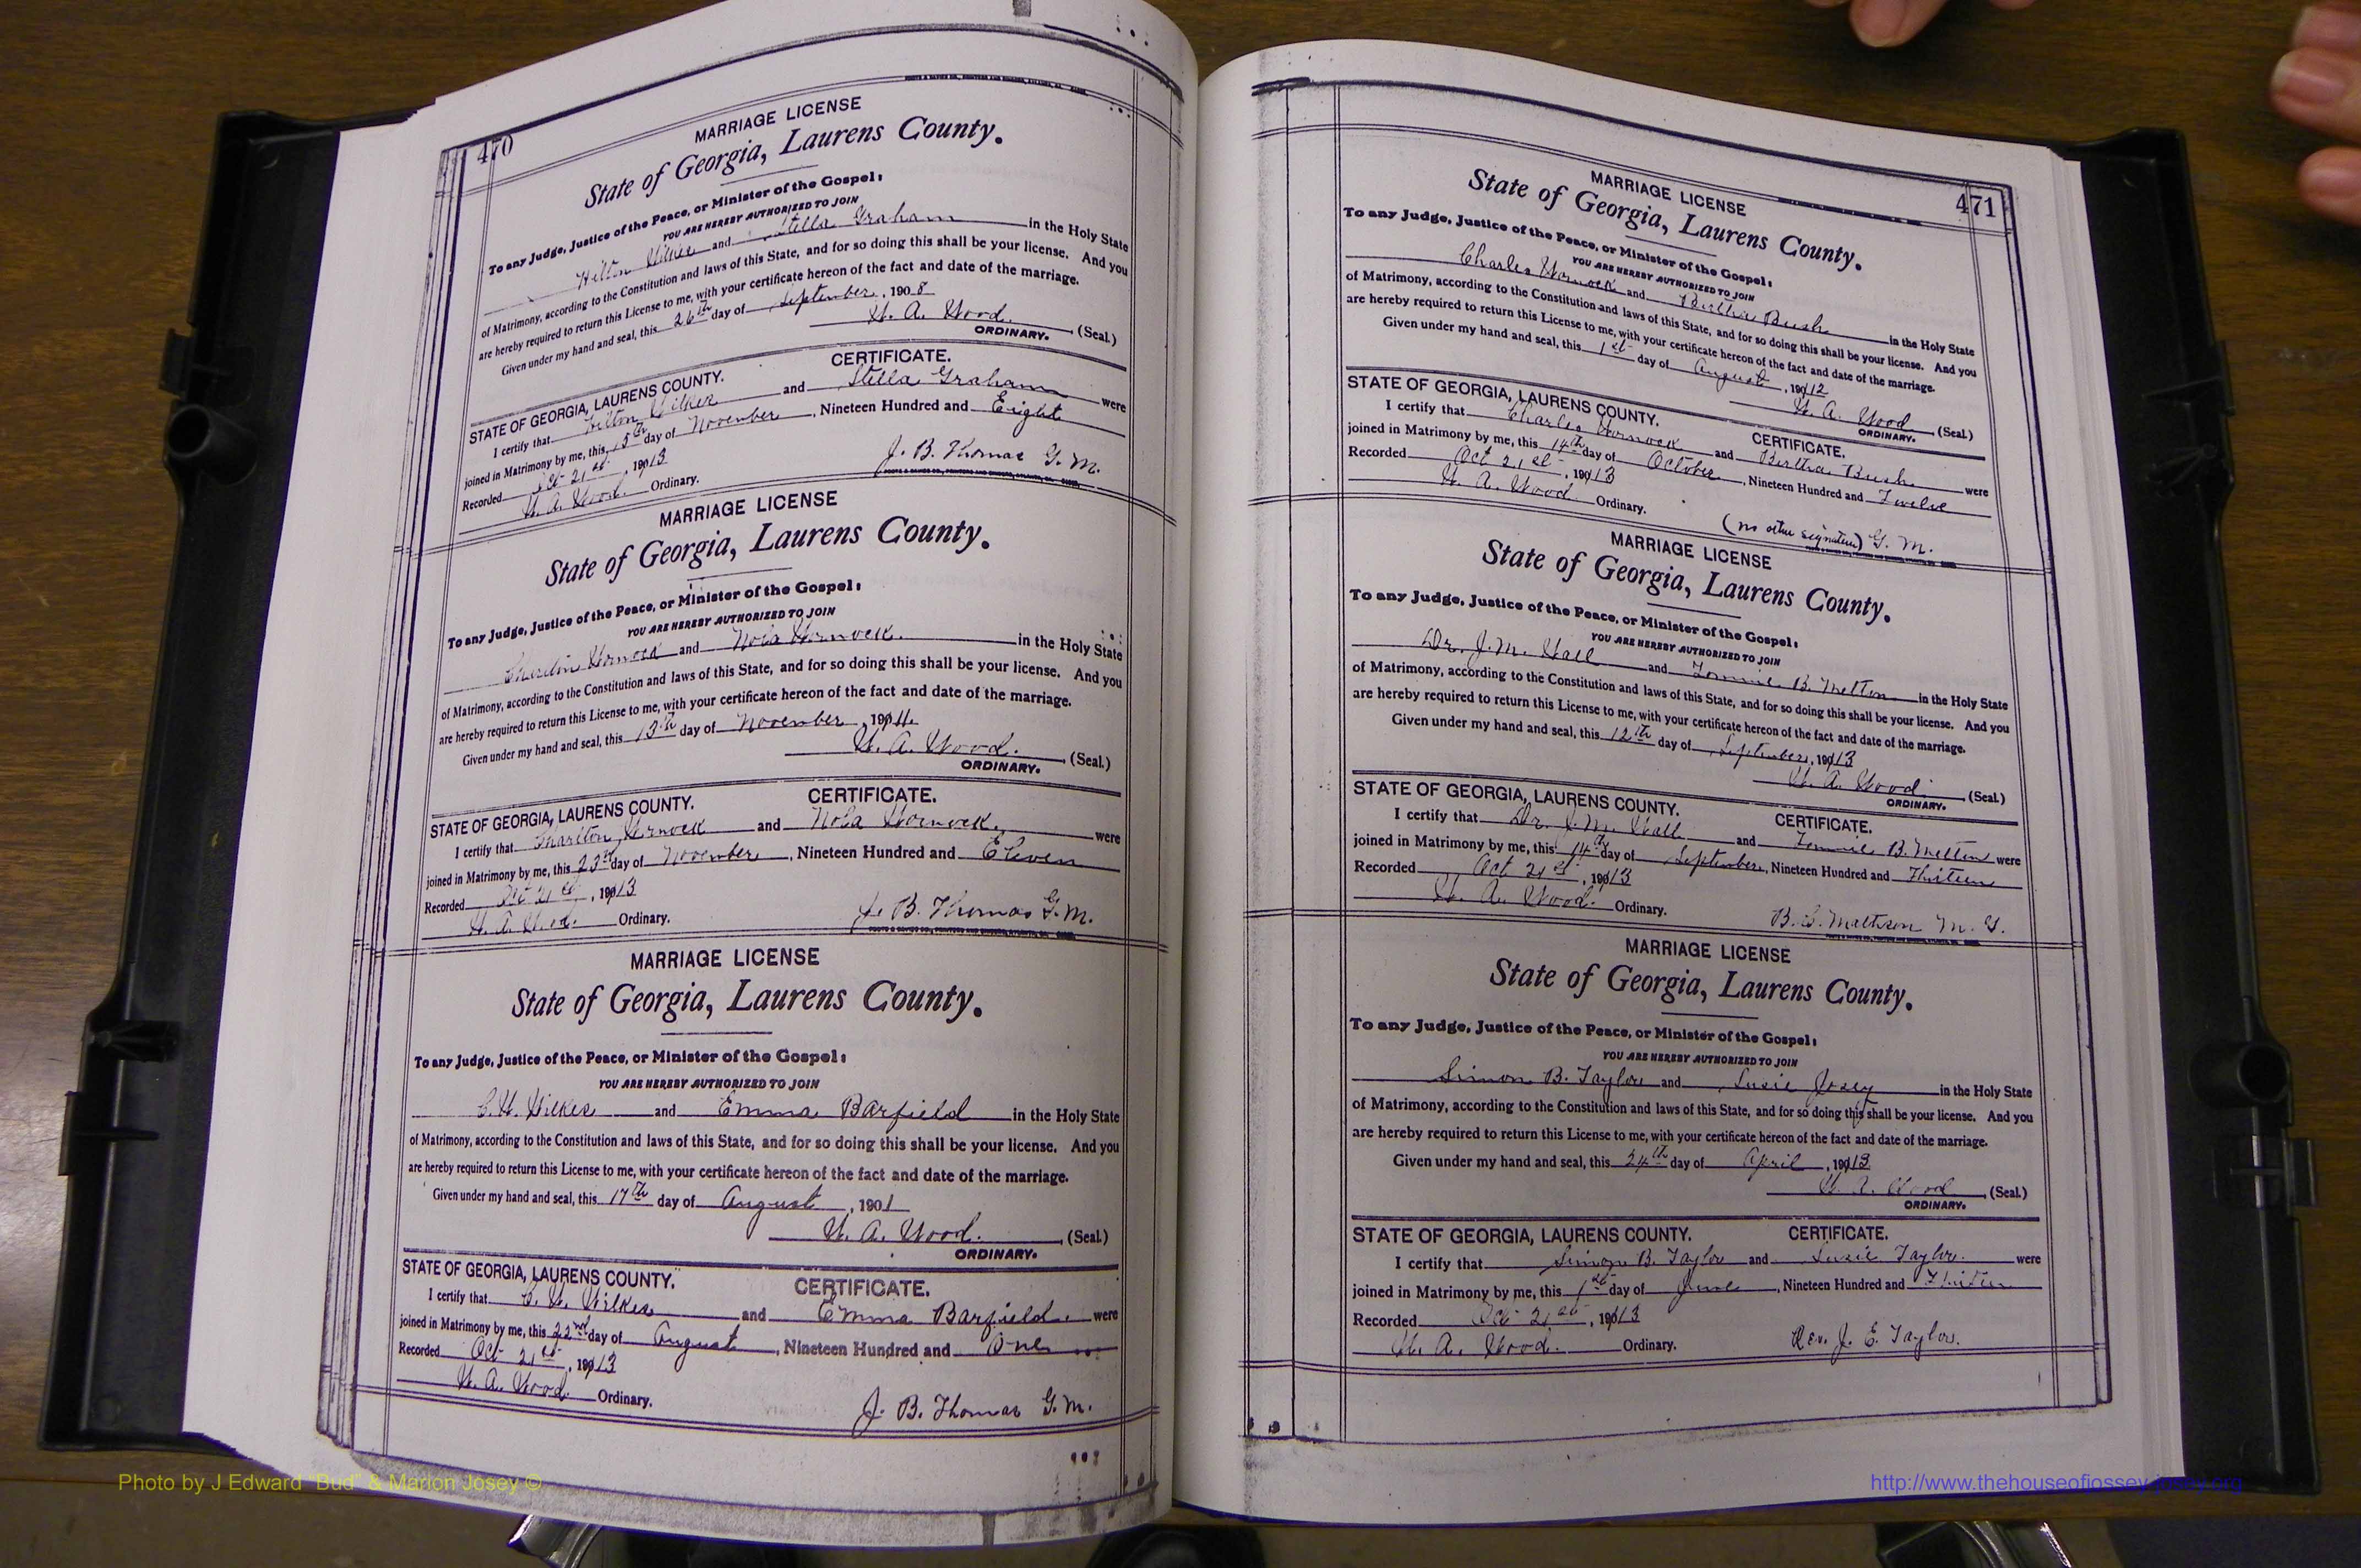 470
MARRIAGE LICENSE
State of Georgia, Laurens County.
To any Judge, Justice of the Peace, or Minister of the Gospel:
YOU ARE HEREBY AUTHORIZED TO JOIN
Hilton Wilkes and Stella Graham in the Holy State
of Matrimony, according to the Constitution and laws of this State, and for so doing this shall be your license. And you
are hereby required to return this License to me, with your certificate hereon of the fact and date of the marriage.
Given under my hand and seal, this 26th day of September, 1908
W. A. Wood. (Seal.)
ORDINARY.
STATE OF GEORGIA, LAURENS COUNTY. CERTIFICATE.
I certify that Hilton Wilkes and Stella Graham were
joined in Matrimony by me, this 15th day of November, Nineteen Hundred and Eight
Recorded Oct 21st, 1913
W. A. Wood. Ordinary. J. B. Thomas G. M.
MARRIAGE LICENSE
State of Georgia, Laurens County.
To any Judge, Justice of the Peace, or Minister of the Gospel:
YOU ARE HEREBY AUTHORIZED TO JOIN
and Nola in the Holy State
of Matrimony, according to the Constitution and laws of this State, and for so doing this shall be your license. And you
are hereby required to return this License to me, with your certificate hereon of the fact and date of the marriage.
Given under my hand and seal, this 13th day of November, 1911.
W. A. Wood. (Seal.)
ORDINARY.
STATE OF GEORGIA, LAURENS COUNTY. CERTIFICATE.
I certify that and Nola were
joined in Matrimony by me, this 23rd day of November, Nineteen Hundred and Eleven
Recorded Oct 21st, 1913
W. A. Wood. Ordinary. J. B. Thomas G. M.
MARRIAGE LICENSE
State of Georgia, Laurens County.
To any Judge, Justice of the Peace, or Minister of the Gospel:
YOU ARE HEREBY AUTHORIZED TO JOIN
C. W. Wilkes and Emma Barfield in the Holy State
of Matrimony, according to the Constitution and laws of this State, and for so doing this shall be your license. And you
are hereby required to return this License to me, with your certificate hereon of the fact and date of the marriage.
Given under my hand and seal, this 17th day of August, 1901
W. A. Wood. (Seal.)
ORDINARY.
STATE OF GEORGIA, LAURENS COUNTY. CERTIFICATE.
I certify that C. W. Wilkes and Emma Barfield. were
joined in Matrimony by me, this 22nd day of August, Nineteen Hundred and One
Recorded Oct 21st, 1913
W. A. Wood. Ordinary.
J. B. Thomas G. M.
471
MARRIAGE LICENSE
State of Georgia, Laurens County.
To any Judge, Justice of the Peace, or Minister of the Gospel:
YOU ARE HEREBY AUTHORIZED TO JOIN
Charles and Bertha Bush in the Holy State
of Matrimony, according to the Constitution and laws of this State, and for so doing this shall be your license. And you
are hereby required to return this License to me, with your certificate hereon of the fact and date of the marriage.
Given under my hand and seal, this 1st day of August, 1912
W. A. Wood (Seal.)
ORDINARY.
STATE OF GEORGIA, LAURENS COUNTY. CERTIFICATE.
I certify that Charles and Bertha Bush were
joined in Matrimony by me, this 14th day of October, Nineteen Hundred and Twelve
Recorded Oct 21st, 1913
W. A. Wood Ordinary.
(no other signature) G. M.
MARRIAGE LICENSE
State of Georgia, Laurens County.
To any Judge, Justice of the Peace, or Minister of the Gospel:
YOU ARE HEREBY AUTHORIZED TO JOIN
Dr. J. M. Hall and B. Melton in the Holy State
of Matrimony, according to the Constitution and laws of this State, and for so doing this shall be your license. And you
are hereby required to return this License to me, with your certificate hereon of the fact and date of the marriage.
Given under my hand and seal, this 12th day of September, 1913
W. A. Wood. (Seal.)
ORDINARY.
STATE OF GEORGIA, LAURENS COUNTY. CERTIFICATE.
I certify that Dr. J. M. Hall and B. Melton were
joined in Matrimony by me, this 14th day of September, Nineteen Hundred and Thirteen
Recorded Oct 21st, 1913
W. A. Wood. Ordinary.
B. S. Mathison M. G.
MARRIAGE LICENSE
State of Georgia, Laurens County.
To any Judge, Justice of the Peace, or Minister of the Gospel:
YOU ARE HEREBY AUTHORIZED TO JOIN
Simon B. Taylor and Susie Josey in the Holy State
of Matrimony, according to the Constitution and laws of this State, and for so doing this shall be your license. And you
are hereby required to return this License to me, with your certificate hereon of the fact and date of the marriage.
Given under my hand and seal, this 24th day of April, 1913
W. A. Wood (Seal.)
ORDINARY.
STATE OF GEORGIA, LAURENS COUNTY. CERTIFICATE.
I certify that Simon B. Taylor and Susie Taylor. were
joined in Matrimony by me, this 1st day of June, Nineteen Hundred and Thirteen
Recorded Oct 21st, 1913
W. A. Wood. Ordinary. Rev. J. E. Taylor.
Photo by J Edward "Bud" & Marion Josey ©
http://www.thehouseofjossey-josey.org